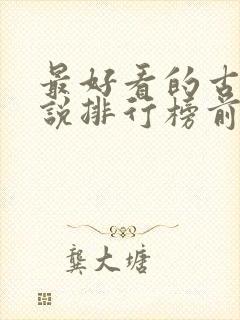 最好看的古
說排行榜前
龔大塘